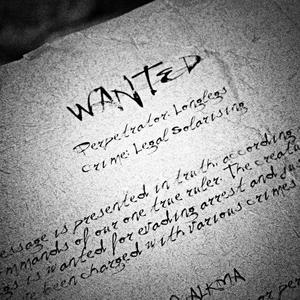 WANTED
Perpetrator: Longlegs
Crime: Legal Solarising
essage is presented in truth, according
mmands of our one true ruler. The creatu
gs is wanted for evading arrest and
been charged with various crimes
ALKMA
per